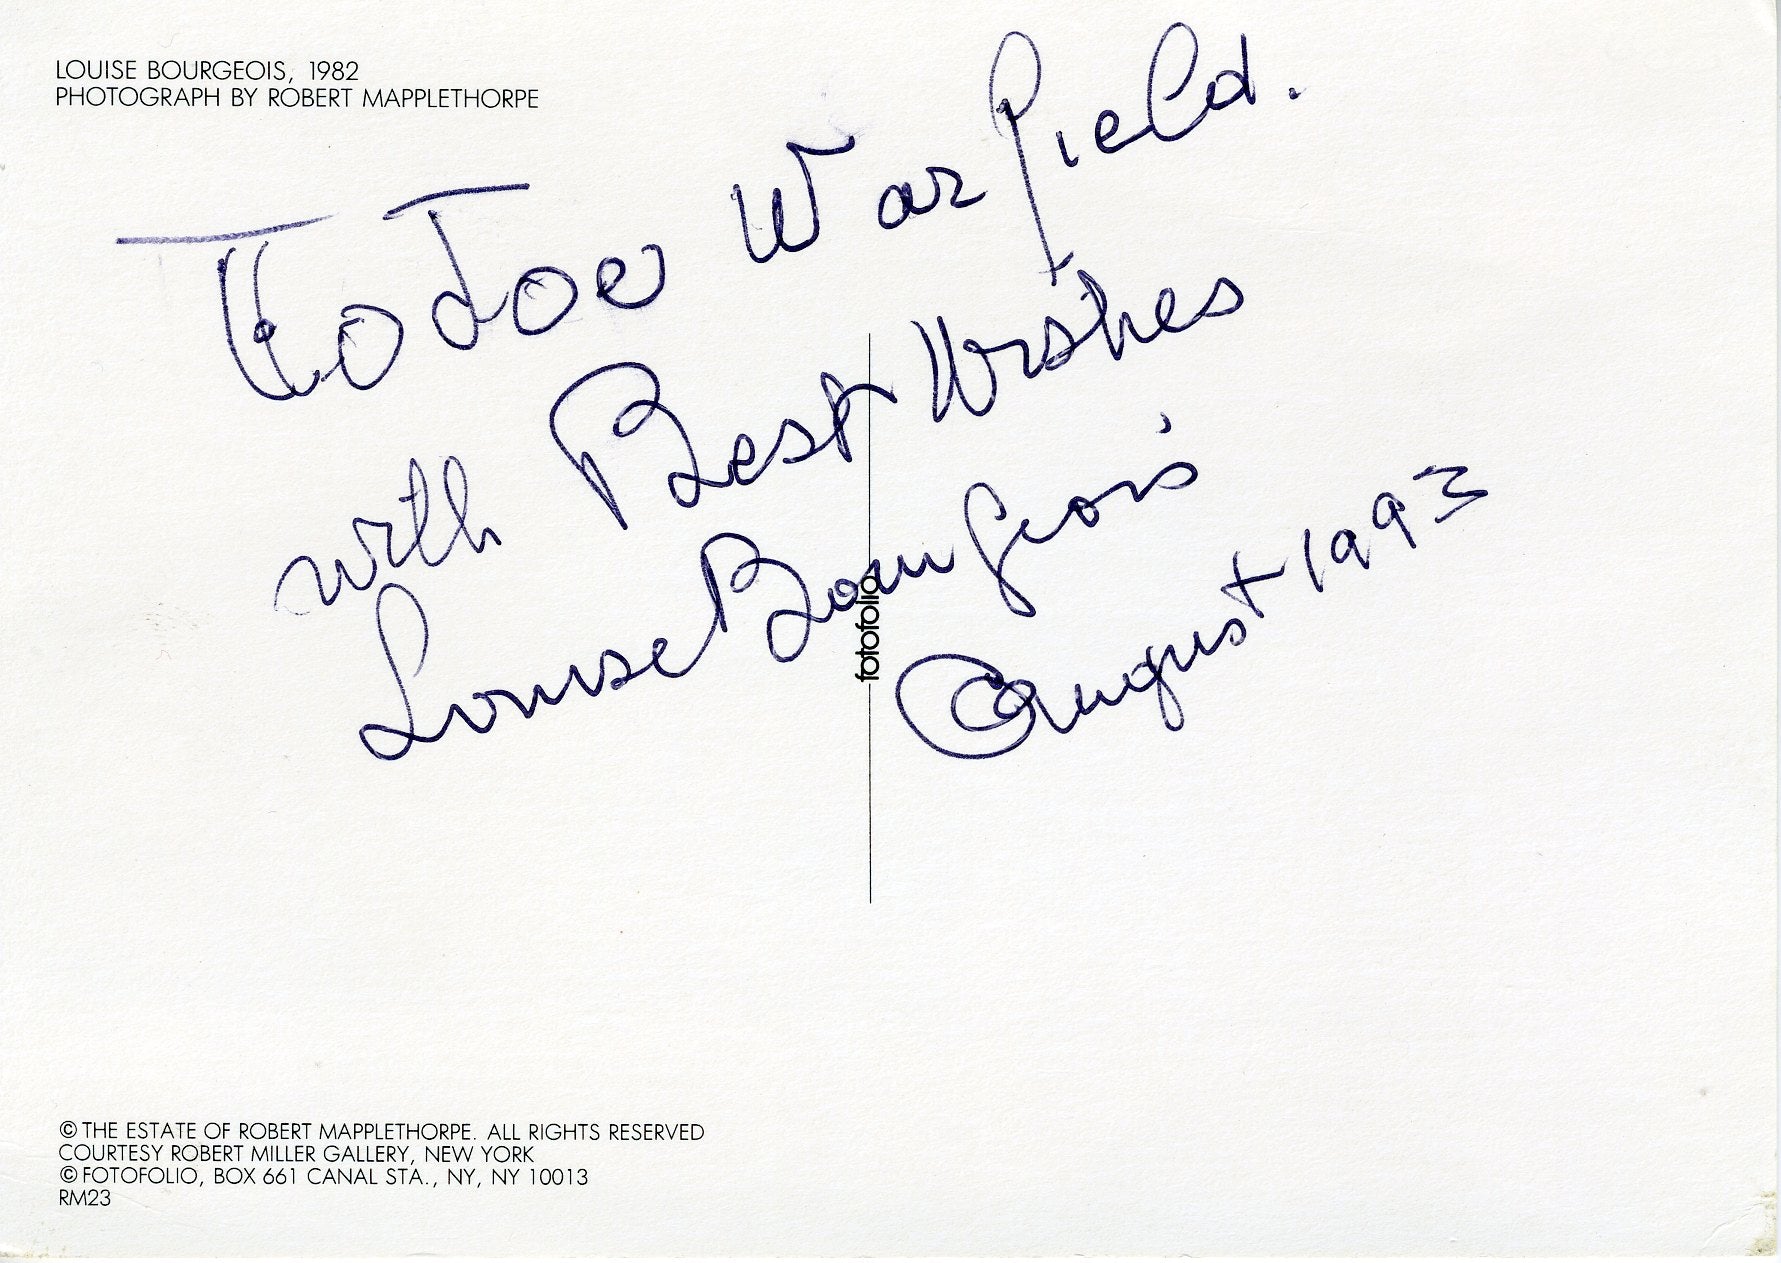 LOUISE BOURGEOIS, 1982
PHOTOGRAPH BY ROBERT MAPPLETHORPE
To Joe Warfield.
with Best Wishes
Louise Bourgeois
August 1993
fotofolio
© THE ESTATE OF ROBERT MAPPLETHORPE. ALL RIGHTS RESERVED
COURTESY ROBERT MILLER GALLERY, NEW YORK
© FOTOFOLIO, BOX 661 CANAL STA., NY, NY 10013
RM23